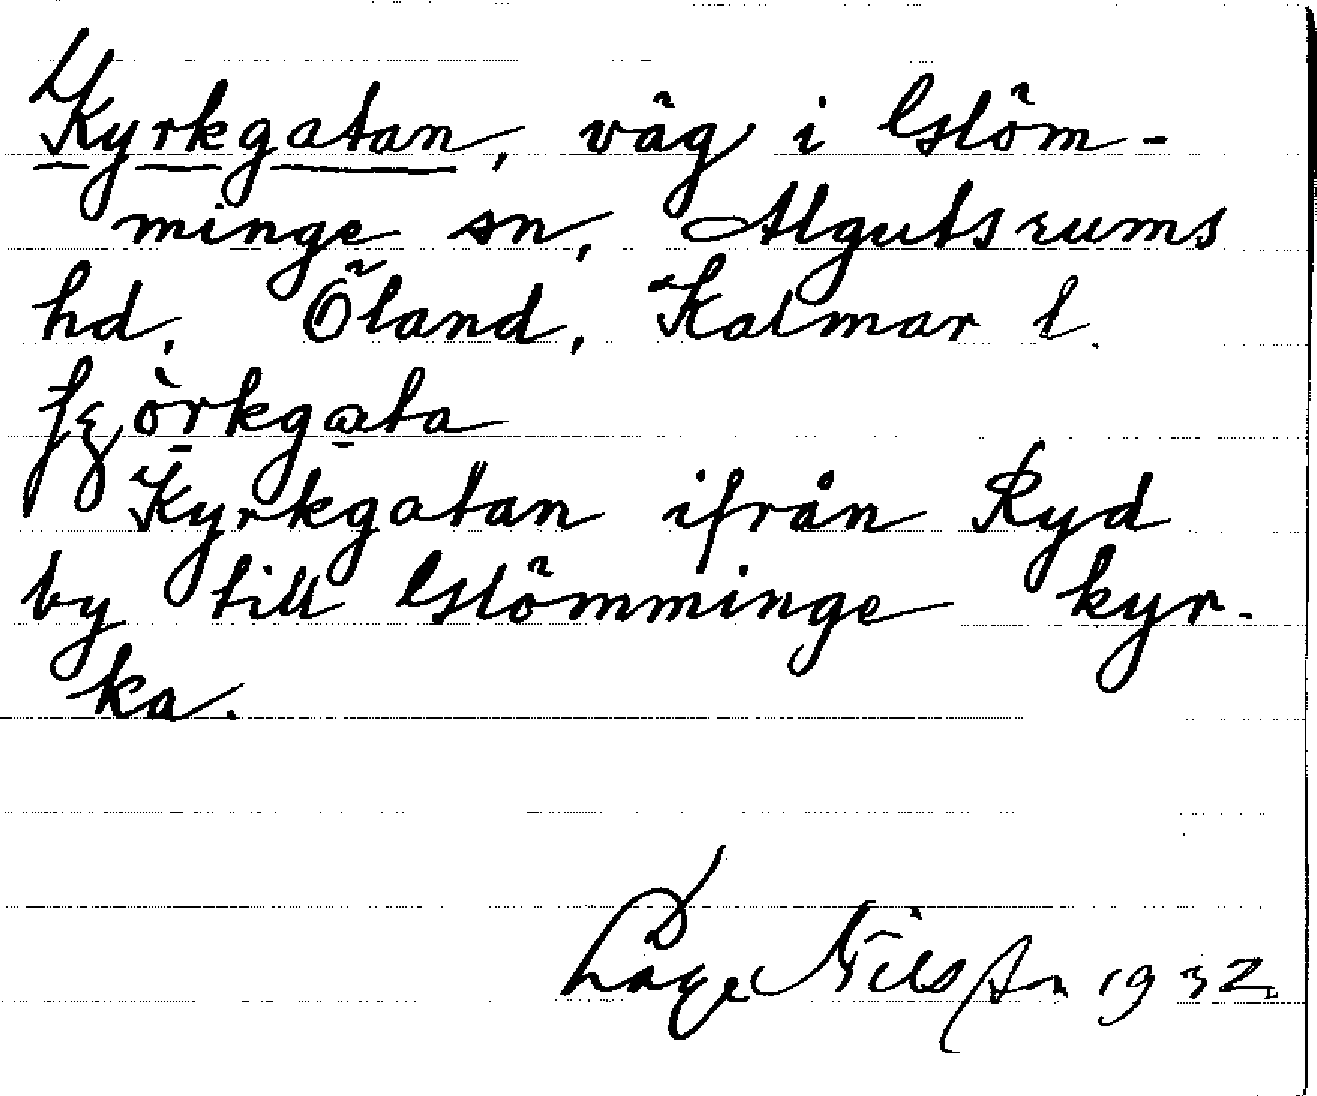 Kyrkgatan, väg i Glöm-
minge sn, Algutsrums
hd, Öland, Kalmar l.
Kyrkgatan ifrån Ryd
by till Glömminge kyr-
ka.
Lage Nilsson 1932